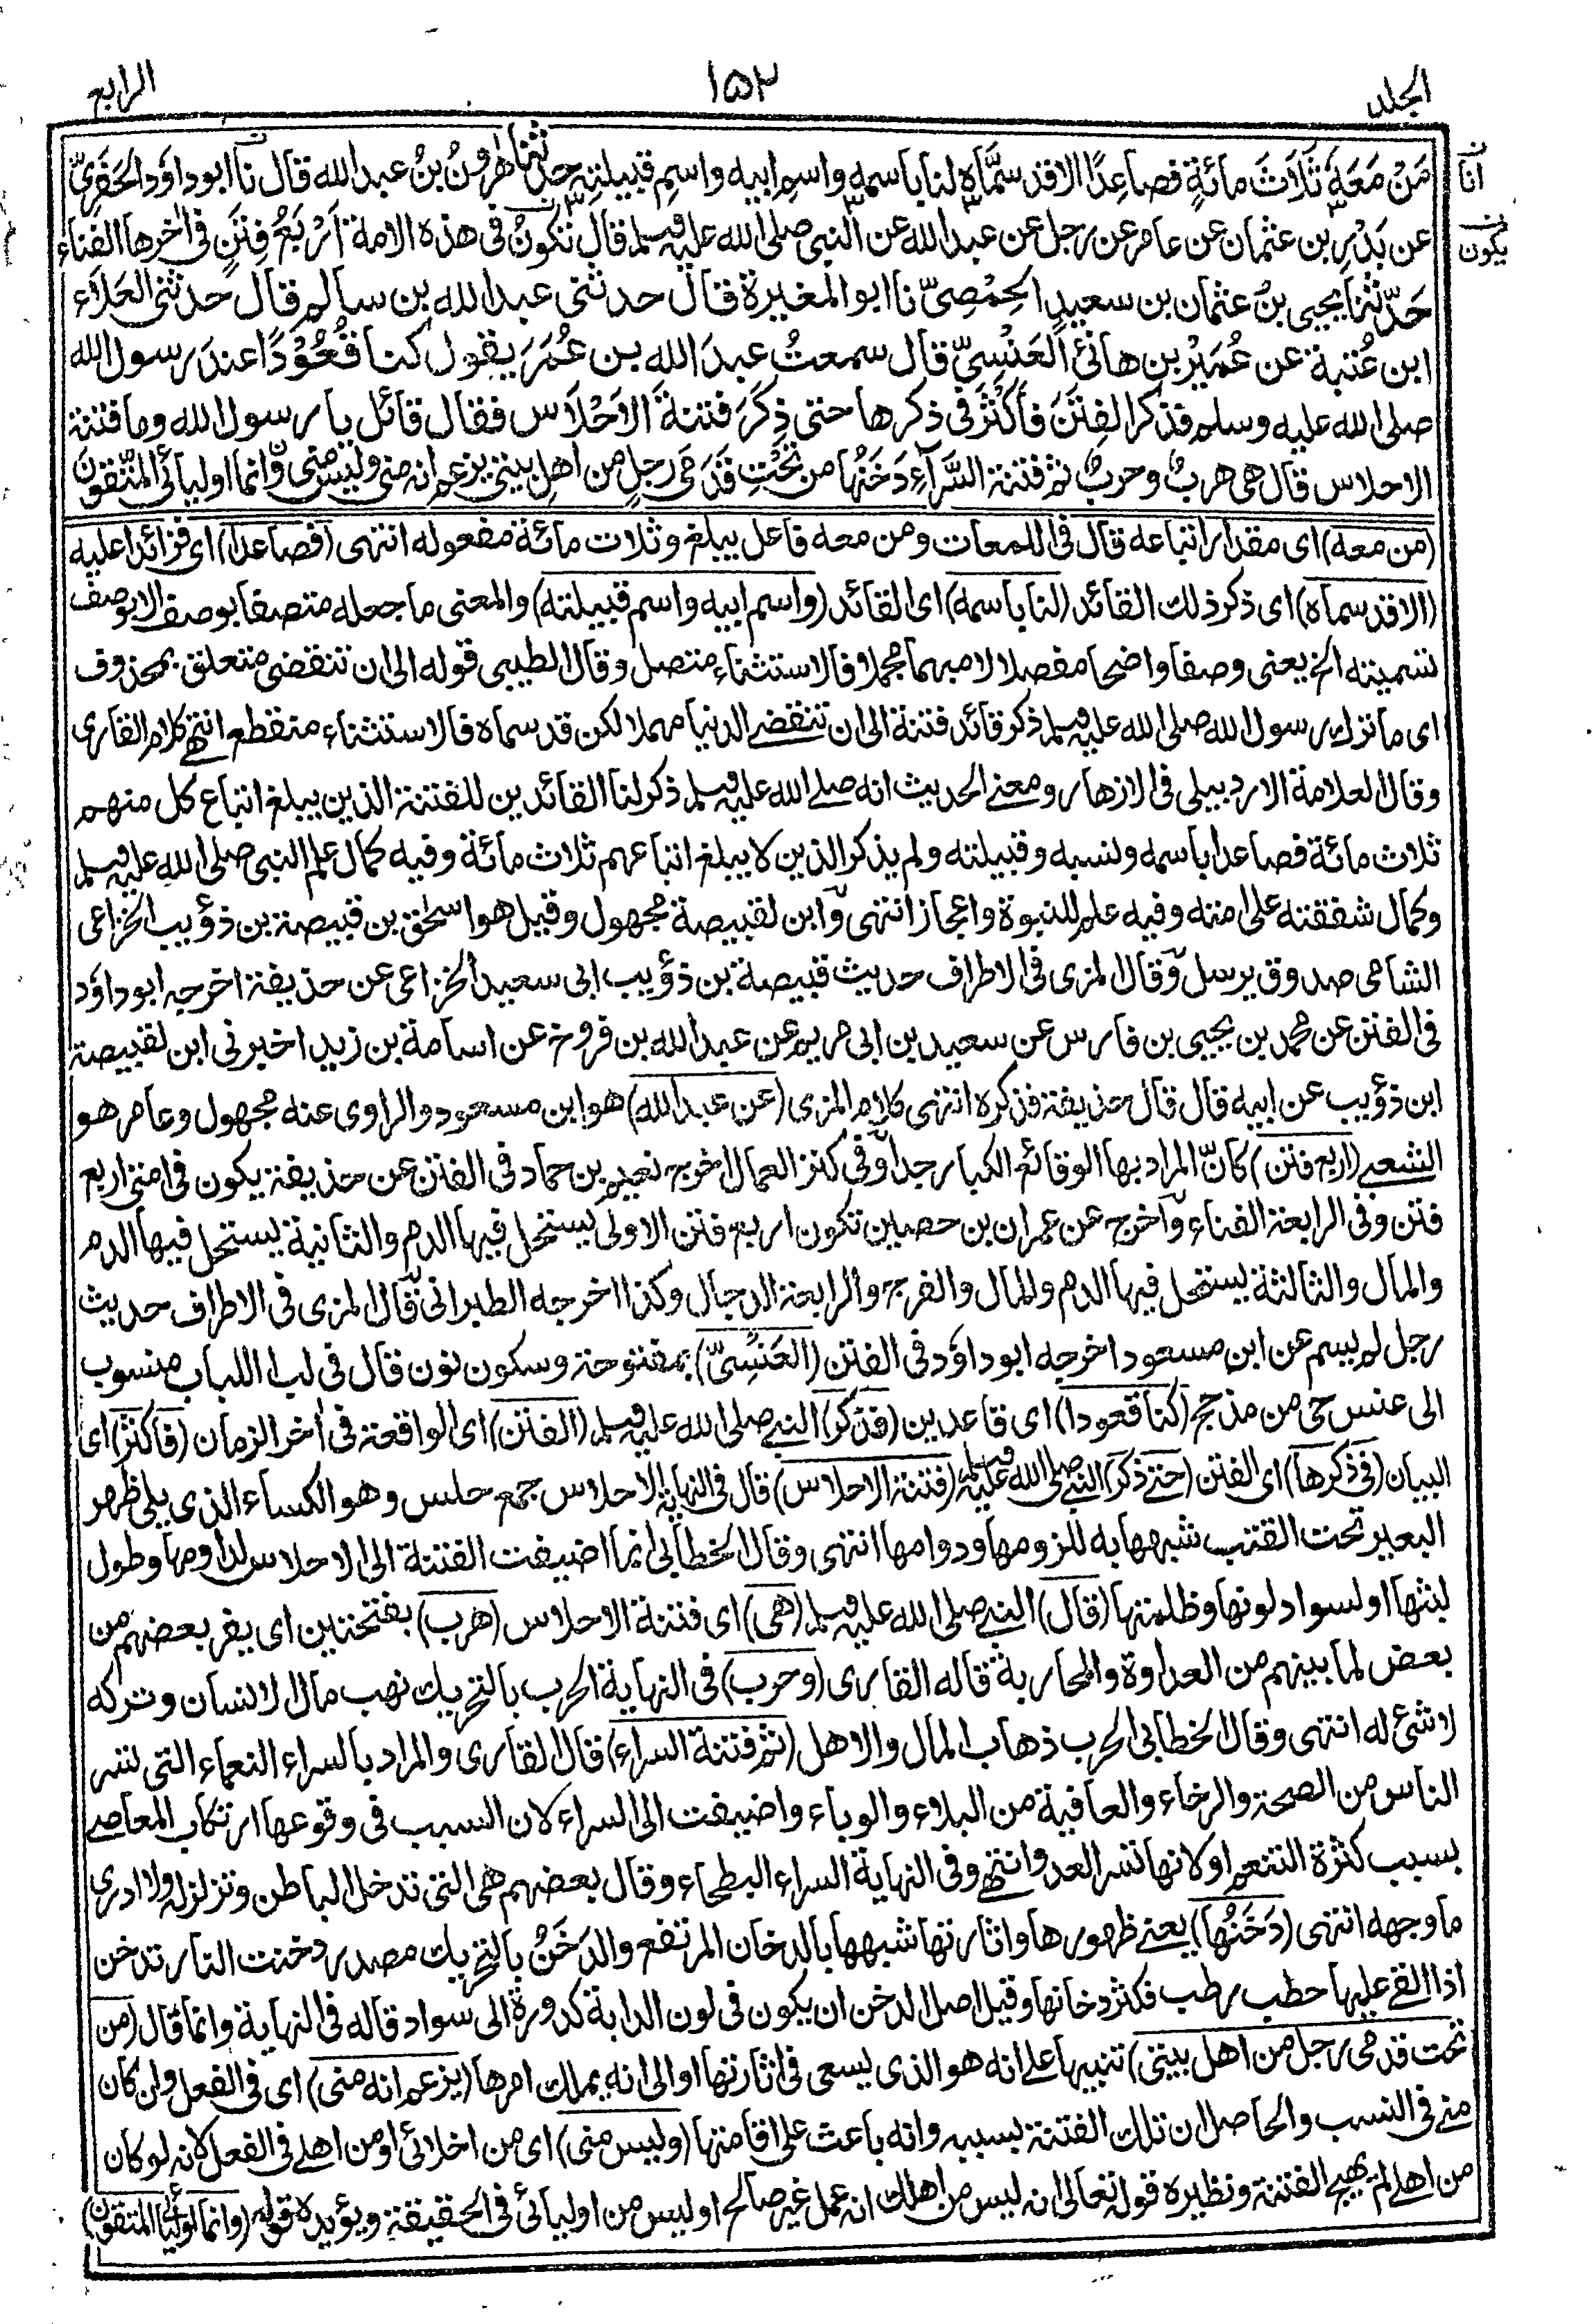 الجلد
۱۵۲
الرابع
مَنْ مَعَهٗ ثَلَاثَ مائةٍ فصاعدًا الا قد سمَّاه لنا باسمهٖ واسمِ ابيه واسمِ قبيلتهٖ حدثنا هٰرونُ بنُ عبد الله قال نا ابوداؤد الحَفَرِيّ
عن بَدْرِ بن عثمان عن عامر عن رجل عن عبد الله عن النبي صلى الله عليه وسلم قال تَكونُ في هذه الامة اَرْبَعُ فِتَنٍ في اٰخرها الفناء
حَدّثنا يحيى بنُ عثمان بن سعيدٍ الحِمْصِيّ نا ابو المغيرة قال حدثني عبد الله بن سالم قال حدثني العَلاء
ابن عُتبة عن عُمَيْر بن هانئ العَنْسِيّ قال سمعتُ عبدَ الله بن عُمَرَ يقول كنا قُعُوْدًا عندَ رسول الله
صلى الله عليه وسلم فذكر الفِتَنَ فأكْثَرَ في ذكرها حتى ذكَرَ فتنةَ الاَحْلَاس فقال قائل يا رسول الله وما فتنة
الاحلاس قال هي هربٌ وحربٌ ثم فتنة السَّرآءِ دَخَنُها من تحْتِ قَدَمَي رجلٍ من اهلِ بيتي يزعم انه مني وليس مني وانما اوليائي المتَّقونَ
انا
يكون
(من معه) اى مقدار اتباعه قال في اللمعات ومن معه فاعل يبلغ وثلاث مائة مفعوله انتهى (فصاعدا) اى فزائدا عليه
(الا قد سماه) اى ذكر ذلك القائد (لنا باسمه) اى القائد (واسم ابيه واسم قبيلته) والمعنى ما جعله متصفا بوصف الا بوصف
تسميته الخ يعنى وصفا واضحا مفصلا لا مبهما مجملا فالاستثناء متصل وقال الطيبى قوله الى ان تنقضى متعلق بمحذوف
اى ما ترك رسول الله صلى الله عليه وسلم ذكر قائد فتنة الى ان تنقضے الدنيا مهملا لكن قد سماه فالاستثناء منقطع انتهے كلام القارى
وقال العلامة الاردبيلى فى الازهار ومعنے الحديث انه صلے الله عليه وسلم ذكر لنا القائدين للفتنة الذين يبلغ اتباع كل منهم
ثلاث مائة فصاعدا باسمه ونسبه وقبيلته ولم يذكر الذين لا يبلغ اتباعهم ثلاث مائة وفيه كمال علم النبى صلى الله عليه وسلم
وكمال شفقته على امته وفيه علم للنبوة واعجاز انتهى وابن لقبيصة مجهول وقيل هو اسحٰق بن قبيصة بن ذؤيب الخزاعى
الشامى صدوق يرسل وقال المزى فى الاطراف حديث قبيصة بن ذؤيب ابى سعيد الخزاعى عن حذيفة اخرجه ابوداؤد
فى الفتن عن محمد بن يحيى بن فارس عن سعيد بن ابى مريم عن عبد الله بن فروخ عن اسامة بن زيد اخبرنى ابن لقبيصة
ابن ذؤيب عن ابيه قال قال حذيفة فذكره انتهى كلام المزى (عن عبد الله) هو ابن مسعود والراوى عنه مجهول وعامر هو
الشعبے (اربع فتن) كانّ المراد بها الوقائع الكبار جدا وفى كنز العمال اخرج نعيم بن حماد فى الفتن عن حذيفة يكون فى امتى اربع
فتن وفى الرابعة الفناء واخرج عن عمران بن حصين تكون اربع فتن الاولى يستحل فيها الدم والثانية يستحل فيها الدم
والمال والثالثة يستحل فيها الدم والمال والفرج والرابعة الدجال وكذا اخرجه الطبرانى قال المزى فى الاطراف حديث
رجل لم يسم عن ابن مسعود اخرجه ابوداؤد فى الفتن (العَنْسِىّ) بمفتوحة وسكون نون قال فى لب اللباب منسوب
الى عنس حى من مذحج (كنا قعودا) اى قاعدين (فذكر) النبے صلى الله عليه وسلم (الفتن) اى الواقعة فى اٰخر الزمان (فاكثر) اى
البيان (فى ذكرها) اى الفتن (حتے ذكر) النبے صلى الله عليه وسلم (فتنة الاحلاس) قال فى النهاية الاحلاس جمع حلس وهو الكساء الذى يلى ظهر
البعير تحت القتب شبهها به للزومها ودوامها انتهى وقال الخطابى انما اضيفت الفتنة الى الاحلاس لدوامها وطول
لبثها او لسواد لونها وظلمتها (قال) النبے صلى الله عليه وسلم (هى) اى فتنة الاحلاس (هرب) بفتحتين اى يفر بعضهم من
بعض لما بينهم من العداوة والمحاربة قاله القارى (وحرب) فى النهاية الحرب بالتحريك نهب مال الانسان وتركه
لا شئ له انتهى وقال الخطابى الحرب ذهاب المال والاهل (ثم فتنة السراء) قال القارى والمراد بالسراء النعماء التى تسر
الناس من الصحة والرخاء والعافية من البلاء والوباء واضيفت الى السراء لان السبب فى وقوعها ارتكاب المعاصے
بسبب كثرة التنعم او لانها تسر العدو انتهے وفى النهاية السراء البطحاء وقال بعضهم هى التى تدخل الباطن وتزلزله ولا ادرى
ما وجهه انتهى (دَخَنُها) يعنے ظهورها واثارتها شبهها بالدخان المرتفع والدَخَنُ بالتحريك مصدر دخنت النار تدخن
اذا القے عليها حطب رطب فكثر دخانها وقيل اصل الدخن ان يكون فى لون الدابة كدورة الى سواد قاله فى النهاية وانما قال (من
تحت قدمى رجل من اهل بيتى) تنبيها علے انه هو الذى يسعى فى اثارتها او الى انه يملك امرها (يزعم انه منى) اى فى الفعل وان كان
منے فى النسب والحاصل ان تلك الفتنة بسببه وانه باعث على اقامتها (وليس منى) اى من اخلائى او من اهلے فى الفعل لانه لو كان
من اهلے لم يهيج الفتنة ونظيره قوله تعالى انه ليس من اهلك انه عمل غير صالح او ليس من اوليائى فى الحقيقة ويؤيده قوله (وانما اوليائى المتقون)